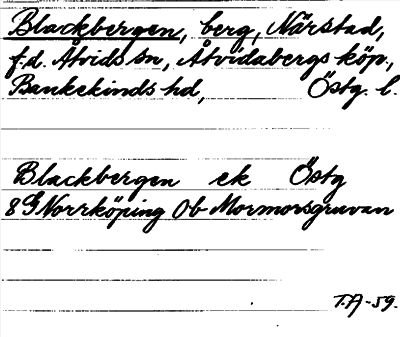 Blackbergen, berg, Närstad,
f.d. Åtvids sn, Åtvidabergs köp.,
Bankekinds hd, Östg. l.
Blackbergen ek Östg
8G Norrköping 0b Mormorsgruvan
T.A-59.